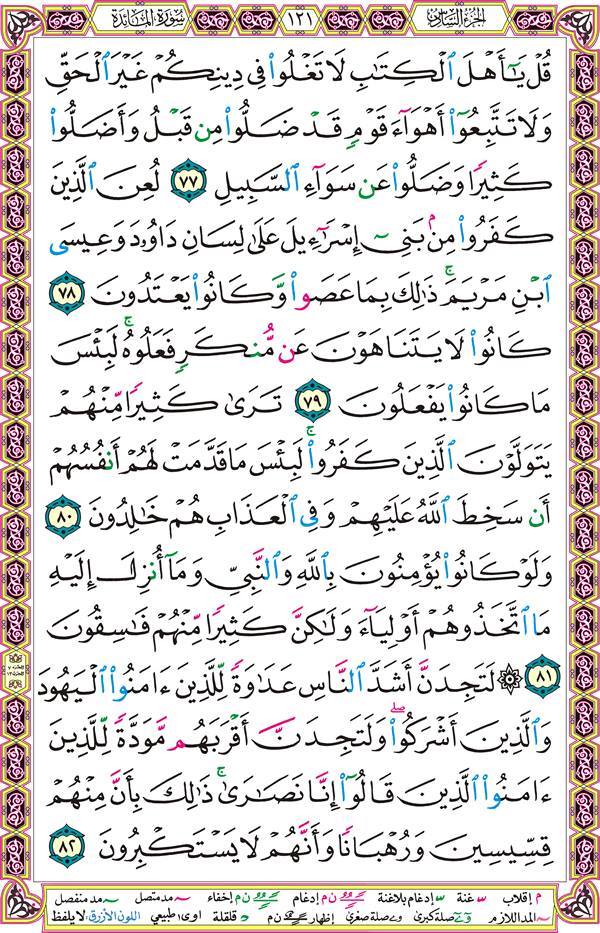 الجزء السادس
١٢١
سورة المائدة
قُلْ يَٰٓأَهْلَ ٱلْكِتَٰبِ لَا تَغْلُوا۟ فِى دِينِكُمْ غَيْرَ ٱلْحَقِّ
وَلَا تَتَّبِعُوٓا۟ أَهْوَآءَ قَوْمٍ قَدْ ضَلُّوا۟ مِن قَبْلُ وَأَضَلُّوا۟
كَثِيرًا وَضَلُّوا۟ عَن سَوَآءِ ٱلسَّبِيلِ ٧٧ لُعِنَ ٱلَّذِينَ
كَفَرُوا۟ مِنۢ بَنِىٓ إِسْرَٰٓءِيلَ عَلَىٰ لِسَانِ دَاوُۥدَ وَعِيسَى
ٱبْنِ مَرْيَمَ ۚ ذَٰلِكَ بِمَا عَصَوا۟ وَّكَانُوا۟ يَعْتَدُونَ ٧٨
كَانُوا۟ لَا يَتَنَاهَوْنَ عَن مُّنكَرٍ فَعَلُوهُ ۚ لَبِئْسَ
مَا كَانُوا۟ يَفْعَلُونَ ٧٩ تَرَىٰ كَثِيرًا مِّنْهُمْ
يَتَوَلَّوْنَ ٱلَّذِينَ كَفَرُوا۟ ۚ لَبِئْسَ مَا قَدَّمَتْ لَهُمْ أَنفُسُهُمْ
أَن سَخِطَ ٱللَّهُ عَلَيْهِمْ وَفِى ٱلْعَذَابِ هُمْ خَٰلِدُونَ ٨٠
وَلَوْ كَانُوا۟ يُؤْمِنُونَ بِٱللَّهِ وَٱلنَّبِىِّ وَمَآ أُنزِلَ إِلَيْهِ
مَا ٱتَّخَذُوهُمْ أَوْلِيَآءَ وَلَٰكِنَّ كَثِيرًا مِّنْهُمْ فَٰسِقُونَ
٨١ ۞ لَتَجِدَنَّ أَشَدَّ ٱلنَّاسِ عَدَٰوَةً لِّلَّذِينَ ءَامَنُوا۟ ٱلْيَهُودَ
وَٱلَّذِينَ أَشْرَكُوا۟ ۖ وَلَتَجِدَنَّ أَقْرَبَهُم مَّوَدَّةً لِّلَّذِينَ
ءَامَنُوا۟ ٱلَّذِينَ قَالُوٓا۟ إِنَّا نَصَٰرَىٰ ۚ ذَٰلِكَ بِأَنَّ مِنْهُمْ
قِسِّيسِينَ وَرُهْبَانًا وَأَنَّهُمْ لَا يَسْتَكْبِرُونَ ٨٢
م إقلاب س غنة س إدغام بلاغنة ن م إدغام ن م إخفاء ~ مد متصل ~ مد منفصل
~ المد اللازم و ے صلة كبرى و ے صلة صغرى إظهار ن م د قلقلة اوى ا طبيعي اللون الأزرق: لا يلفظ